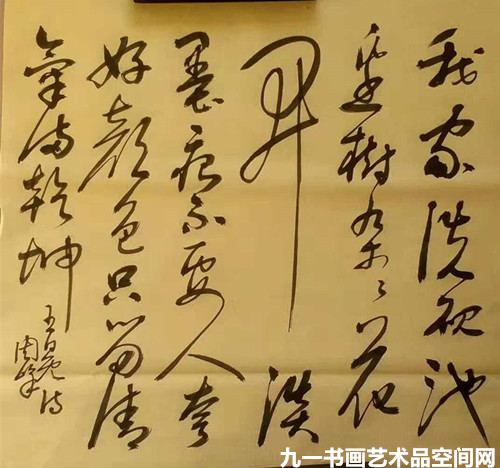 我家洗砚池
边樹朵々花
开淡
墨痕不要人夸
好颜色只留清
氣满乾坤
王冕诗
九一书画艺术品空间网